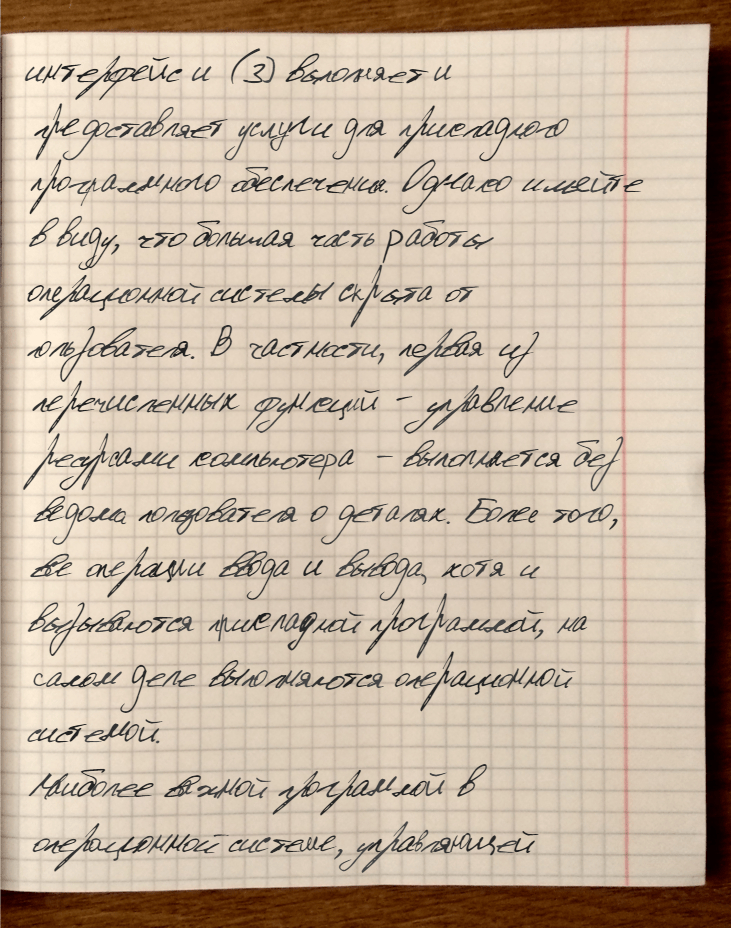 интерфейс и (3) выполняет и
предоставляет услуги для прикладного
программного обеспечения. Однако имейте
в виду, что большая часть работы
операционной системы скрыта от
пользователя. В частности, первая из
перечисленных функций - управление
ресурсами компьютера - выполняется без
ведома пользователя о деталях. Более того,
все операции ввода и вывода, хотя и
вызываются прикладной программой, на
самом деле выполняются операционной
системой.
Наиболее важной программой в
операционной системе, управляющей